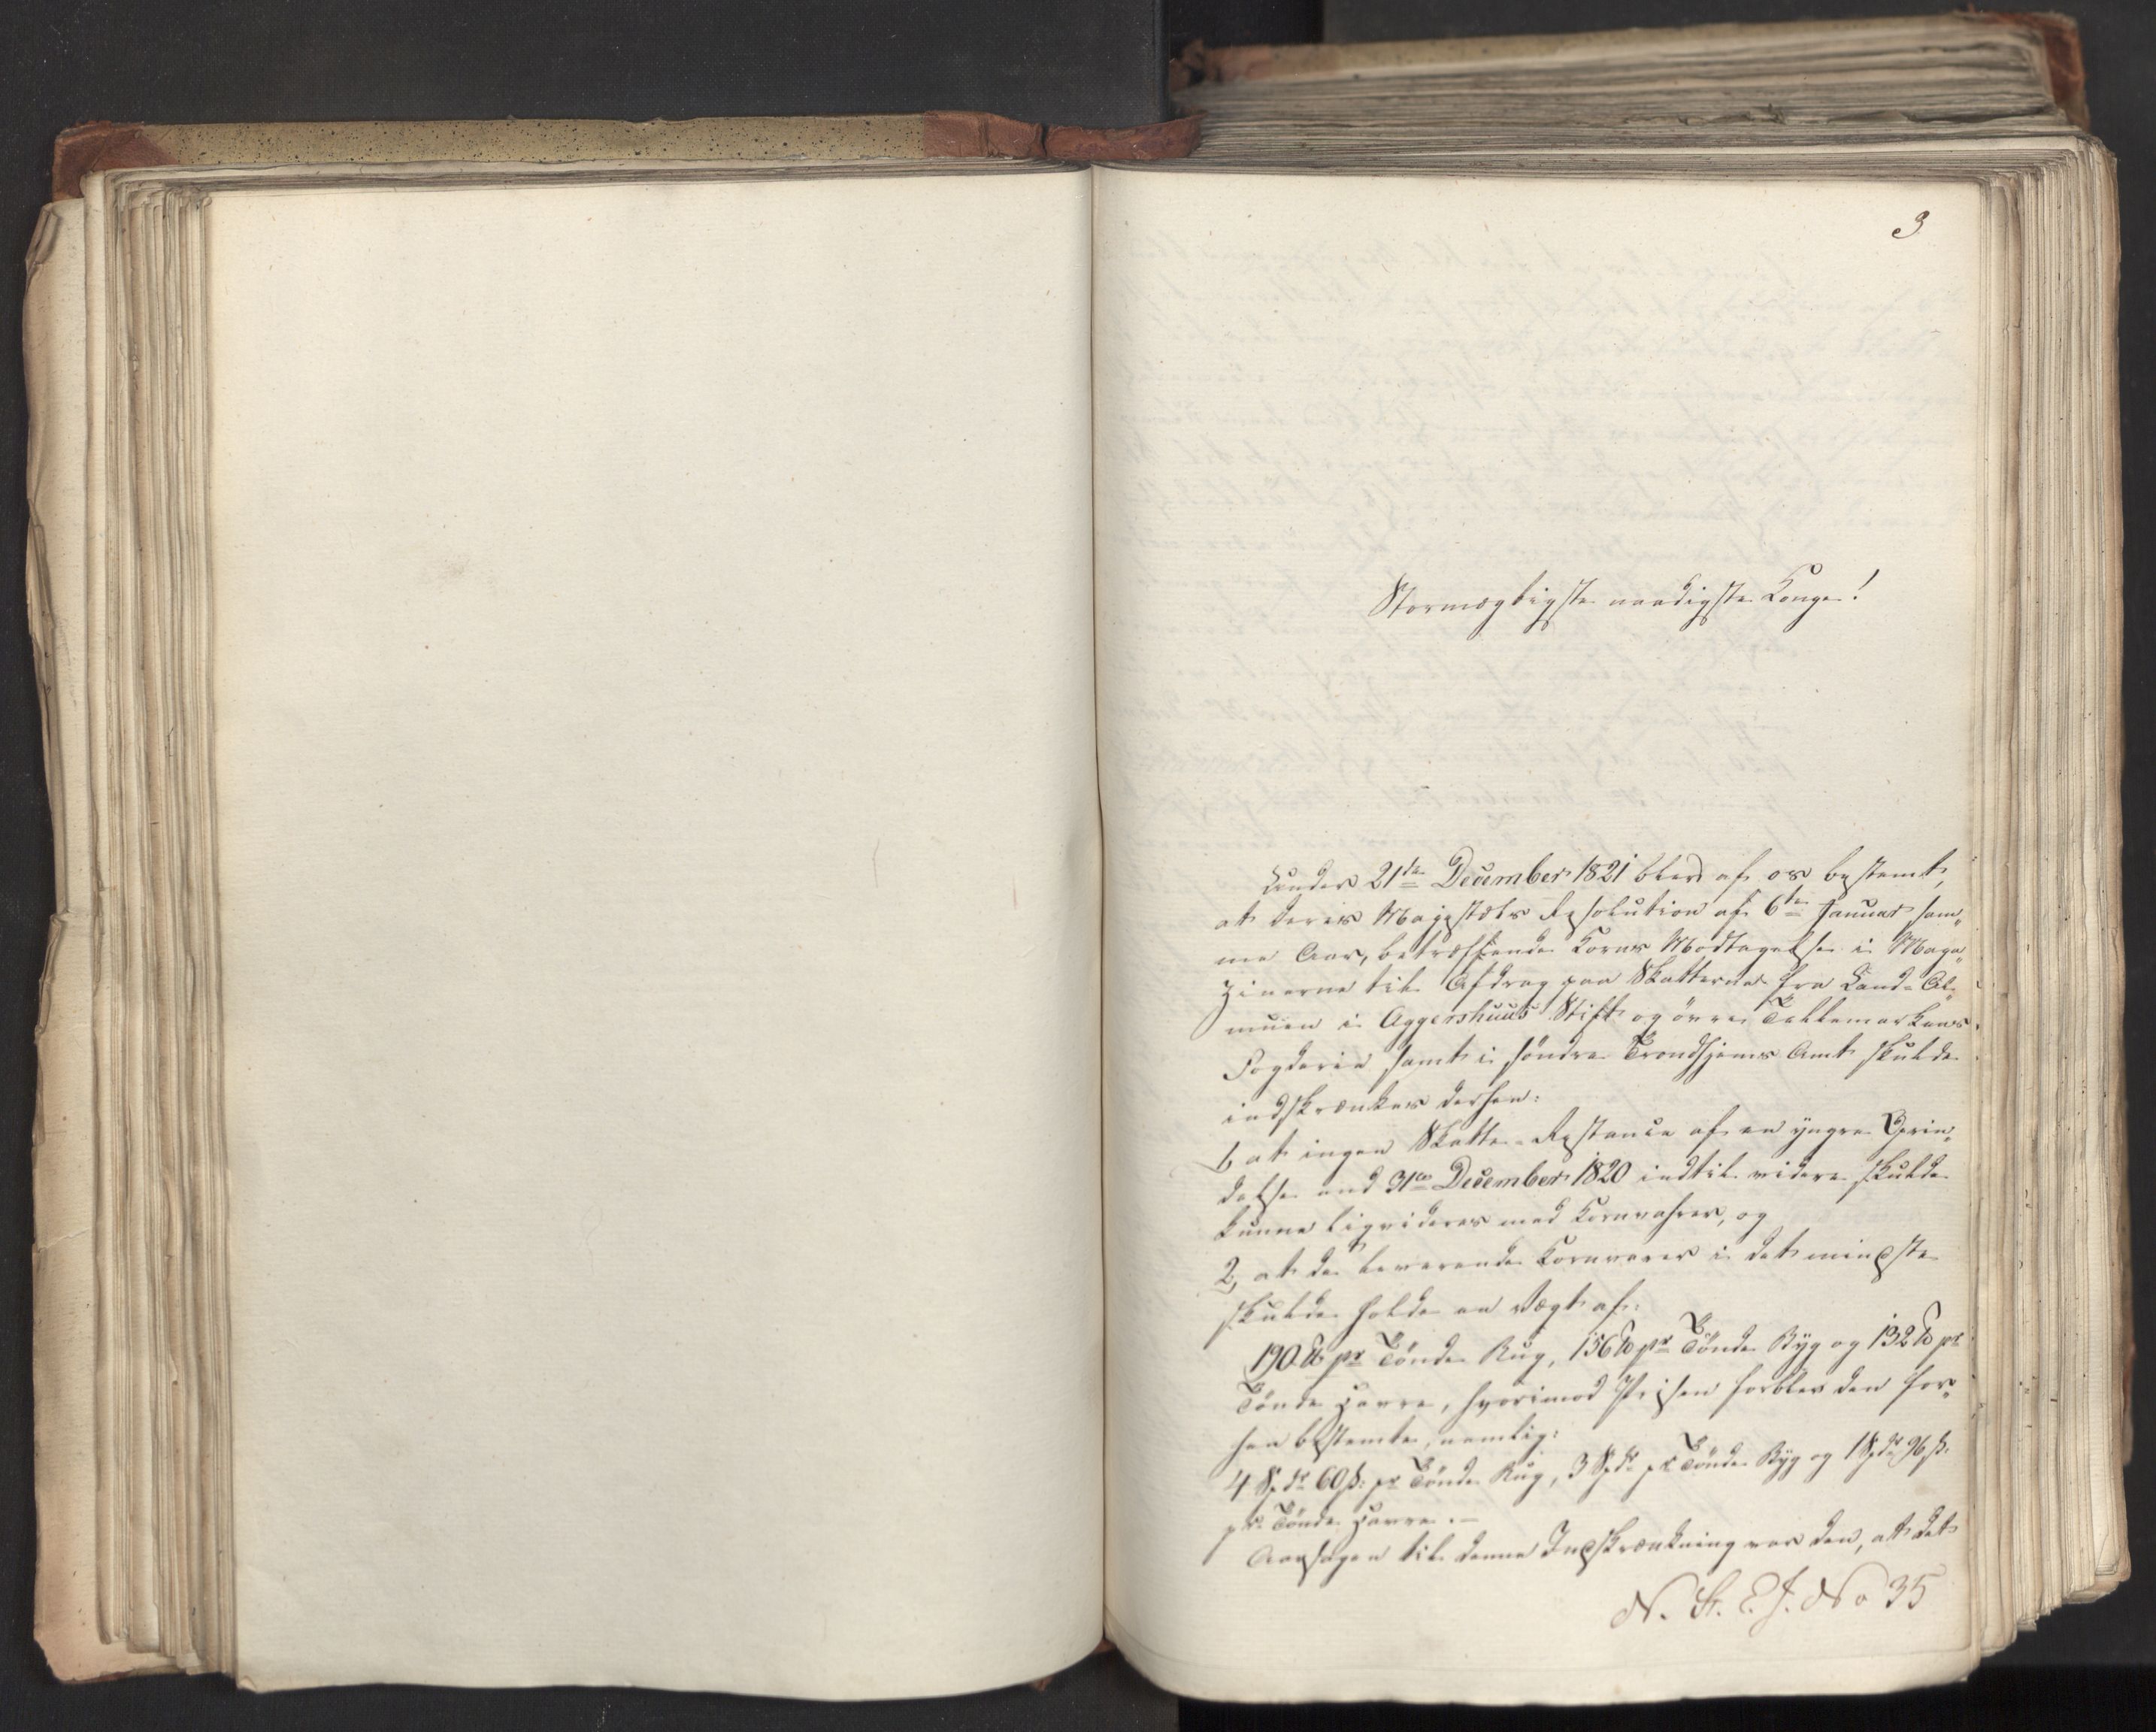 3
Stormægtigste naadigste Konge!
Under 21de December 1821 blev af os bestemt,
at Deres Majestæts Resolution af 6te Januar sam„
me Aar, betræffende Korns Modtagelse i Maga„
zinerne til Afdrag paa Skatterne fra Land-Al„
muen i Aggershuus Stift og övre Tellemarkens
Fogderie samt i söndre Trondhjems Amt skulde
indskrænkes derhen:
1, at ingen Skatte-Restance af en yngre Oprin„
delse end 31te December 1820 indtil videre skulde
kunne liqvideres med Kornvahrer, og
2, at de leverende Kornvarer i det mindste
skulde holde en Vægt af:
190 ℔ pr Tönde Rug, 156 ℔ pr Tönde Byg og 132 ℔ pr
Tönde Havre, hvorimod Prisen forblev den for„
hen bestemte, nemlig:
4 Spdr 60 ß: pr Tönde Rug, 3 Spdr pr Tönde Byg og 1 Spdr 96 ß:
pr Tönde Havre.—
Aarsagen til denne Indskrænkning var den, at det
N. St. E. J. No 35